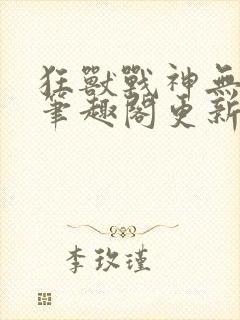 狂獸戰神無
筆趣閣更新
李玫瑾